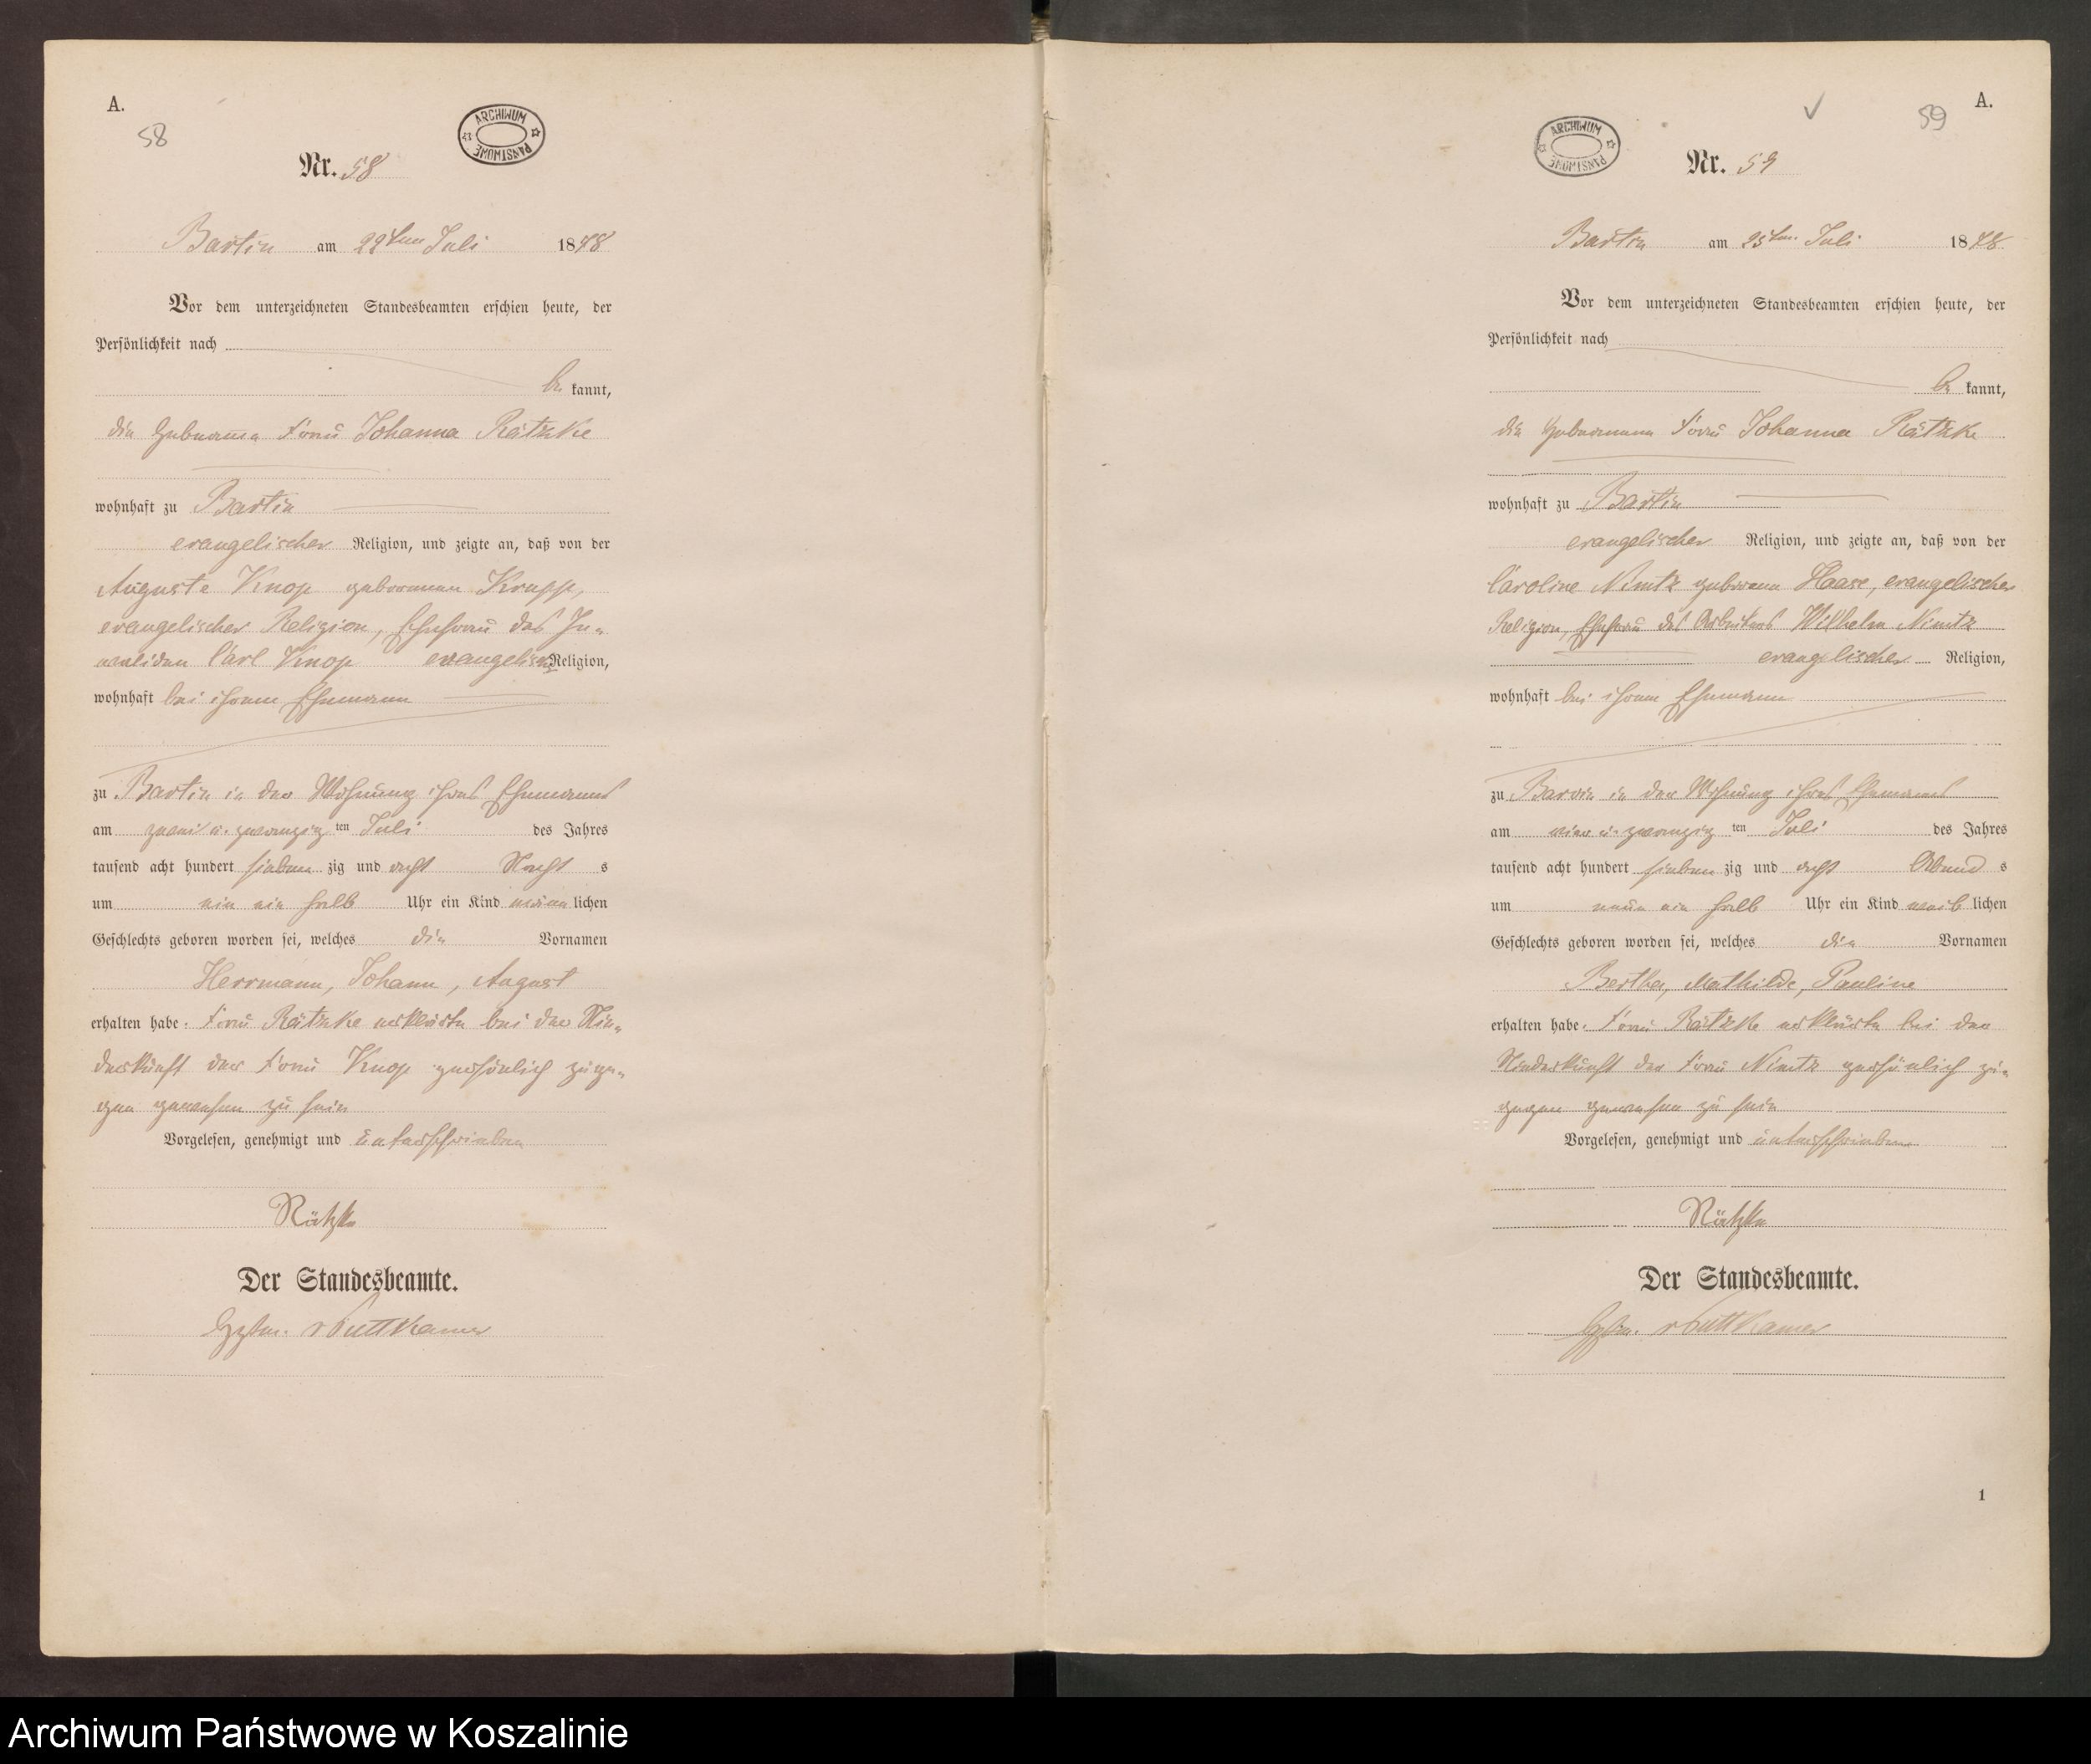 A.
58
ARCHIWUM PAŃSTWOWE
Nr. 58
Bartin am 22ten Juli 1878
Vor dem unterzeichneten Standesbeamten erschien heute, der
Persönlichkeit nach
be kannt,
die Hebamme Frau Johanna Rätzke
wohnhaft zu Bartin
evangelischer Religion, und zeigte an, daß von der
Auguste Knop geborenen Krapp,
evangelischer Religion, Ehefrau des In-
validen Carl Knop evangelisch Religion,
wohnhaft bei ihrem Ehemann
zu Bartin in der Wohnung ihres Ehemannes
am zwei u. zwanzig ten Juli des Jahres
tausend acht hundert sieben zig und acht Nacht s
um ein ein halb Uhr ein Kind männ lichen
Geschlechts geboren worden sei, welches die Vornamen
Herrmann, Johann, August
erhalten habe. Frau Rätzke erklärte bei der Nie-
derkunft der Frau Knop persönlich zuge-
gen gewesen zu sein
Vorgelesen, genehmigt und unterschrieben
Rätzke
Der Standesbeamte.
vPuttkamer
A.
59
ARCHIWUM PAŃSTWOWE
Nr. 59
Bartin am 25ten Juli 1878
Vor dem unterzeichneten Standesbeamten erschien heute, der
Persönlichkeit nach
be kannt,
die Hebamme Frau Johanna Rätzke
wohnhaft zu Bartin
evangelischer Religion, und zeigte an, daß von der
Caroline Nimtz geborene Haase, evangelischer
Religion, Ehefrau des Arbeiters Wilhelm Nimtz
evangelischer Religion,
wohnhaft bei ihrem Ehemann
zu Barvin in der Wohnung ihres Ehemanns
am vier u. zwanzig ten Juli des Jahres
tausend acht hundert sieben zig und acht Abend s
um neun ein halb Uhr ein Kind weib lichen
Geschlechts geboren worden sei, welches die Vornamen
Bertha, Mathilde, Pauline
erhalten habe. Frau Rätzke erklärte bei der
Niederkunft der Frau Nimtz persönlich zu-
gegen gewesen zu sein
Vorgelesen, genehmigt und unterschrieben
Rätzke
Der Standesbeamte.
vPuttkamer
1
Archiwum Państwowe w Koszalinie